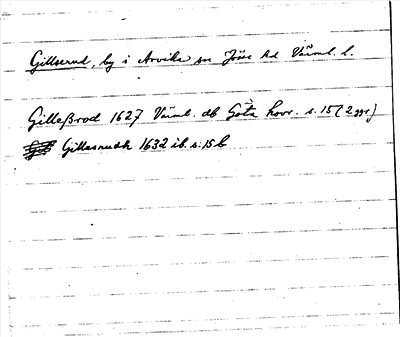 Gillserud, by i Arvika sn Jösse hd Värml. l.
Gilleßrod 1627 Värml. db Göta hovr. s. 15 (2 ggr)
Gillasrudh 1632 ib. s. 15 b